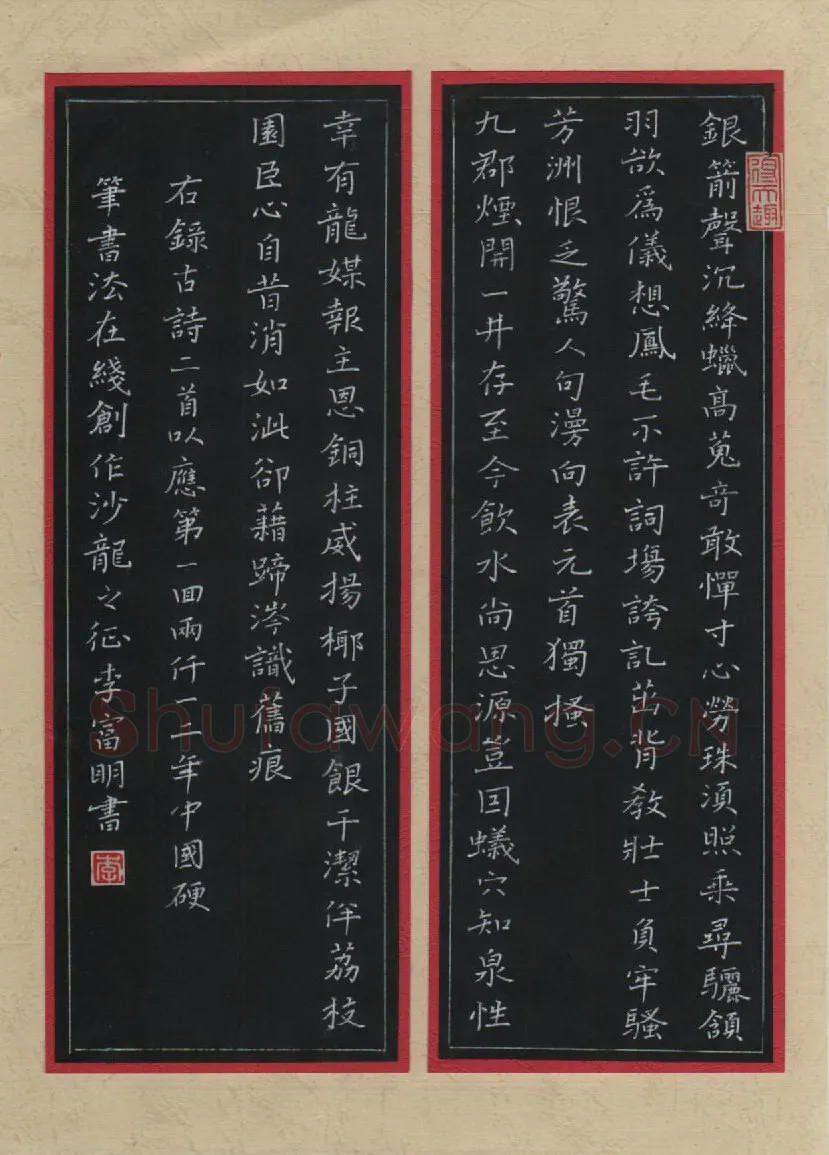 銀箭聲沉絳蠟高蒐奇敢憚寸心勞珠須照乘尋驪頷
羽欲爲儀想鳳毛不許詞場誇訌茁肯教壯士負牢騷
芳洲恨乏驚人句漫向表元首獨搔
九郡煙開一井存至今飲水尚思源豈因蟻穴知泉性
幸有龍媒報主恩銅柱威揚椰子國銀干潔伴荔枝
園臣心自昔消如泚卻藉蹄涔識舊痕
右錄古詩二首以應第一回兩仟一二年中國硬
筆書法在綫創作沙龍之征李富明書
李
Shufawang.CN